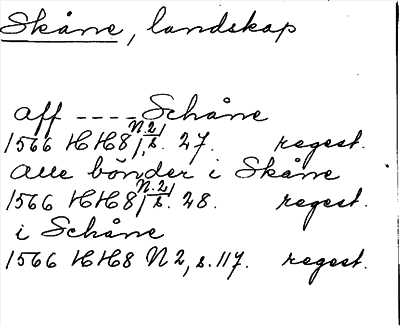 Skåne, landskap
aff ---- Schåne
1566 HH8 N.2, s. 27. regest.
Alle bönder i Skåne
1566 HH8 N.2, s. 28. regest.
i Schåne
1566 HH8 N2, s. 117. regest.